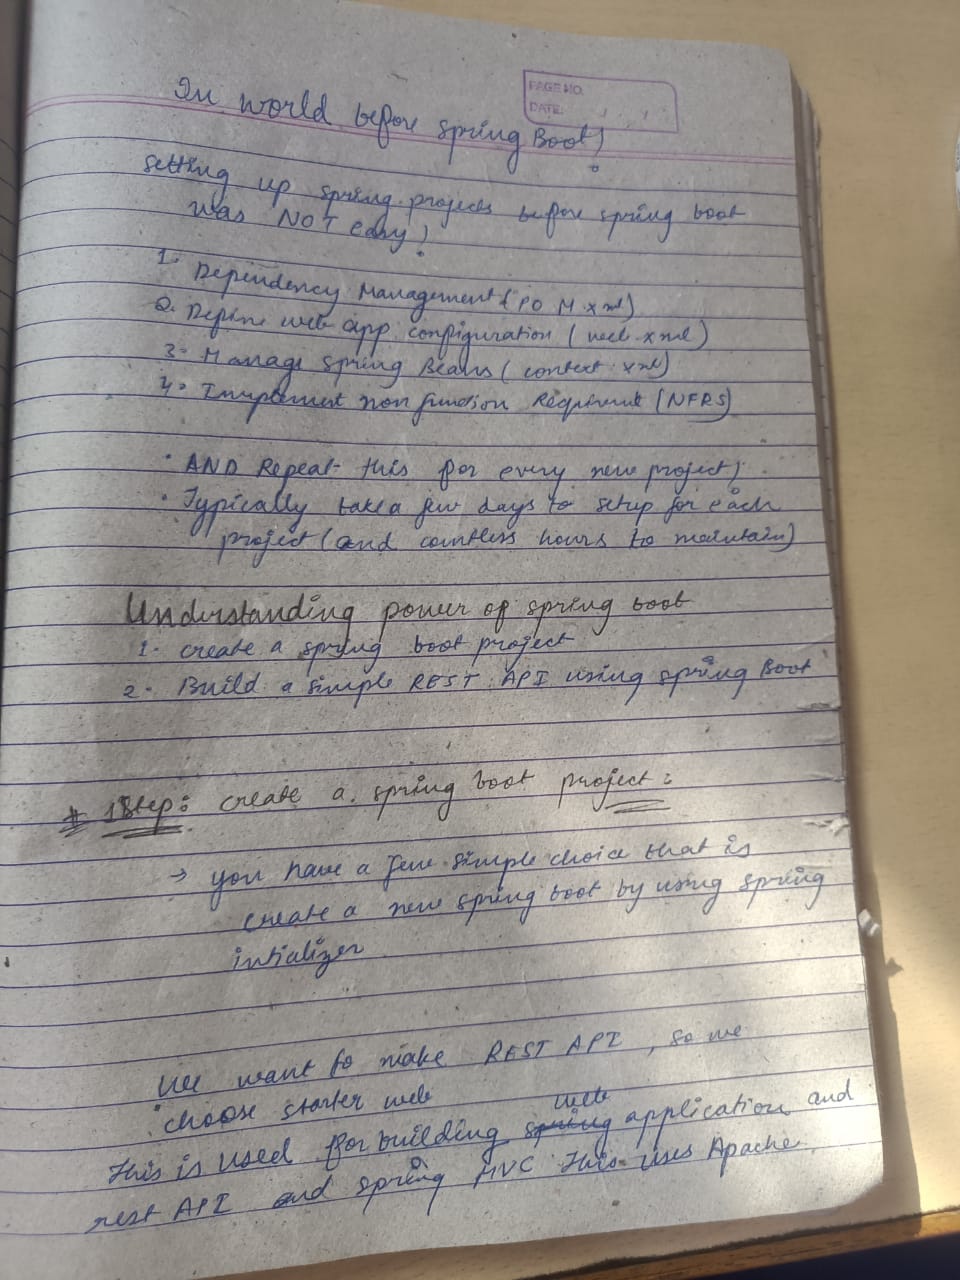 PAGE NO.
DATE:
In world before spring Boot!
setting up spring projects before spring boot
was NOT easy!
1. Dependency Management (POM.xml)
2. Define web app configuration (web.xml)
3. Manage spring Beans (context.xml)
4. Implement non function Requirment (NFRS)
• AND Repeat this for every new project;
• Typically take a few days to setup for each
project (and countless hours to maintain)
Understanding power of spring boot
1. create a spring boot project
2. Build a simple REST API using spring Boot
# 1 Step: create a spring boot project:
→ you have a few simple choice that is
create a new spring boot by using spring
intializer
We want to make REST API, so we
choose starter web
web
This is used for building spring application and
rest API and spring MVC This uses Apache